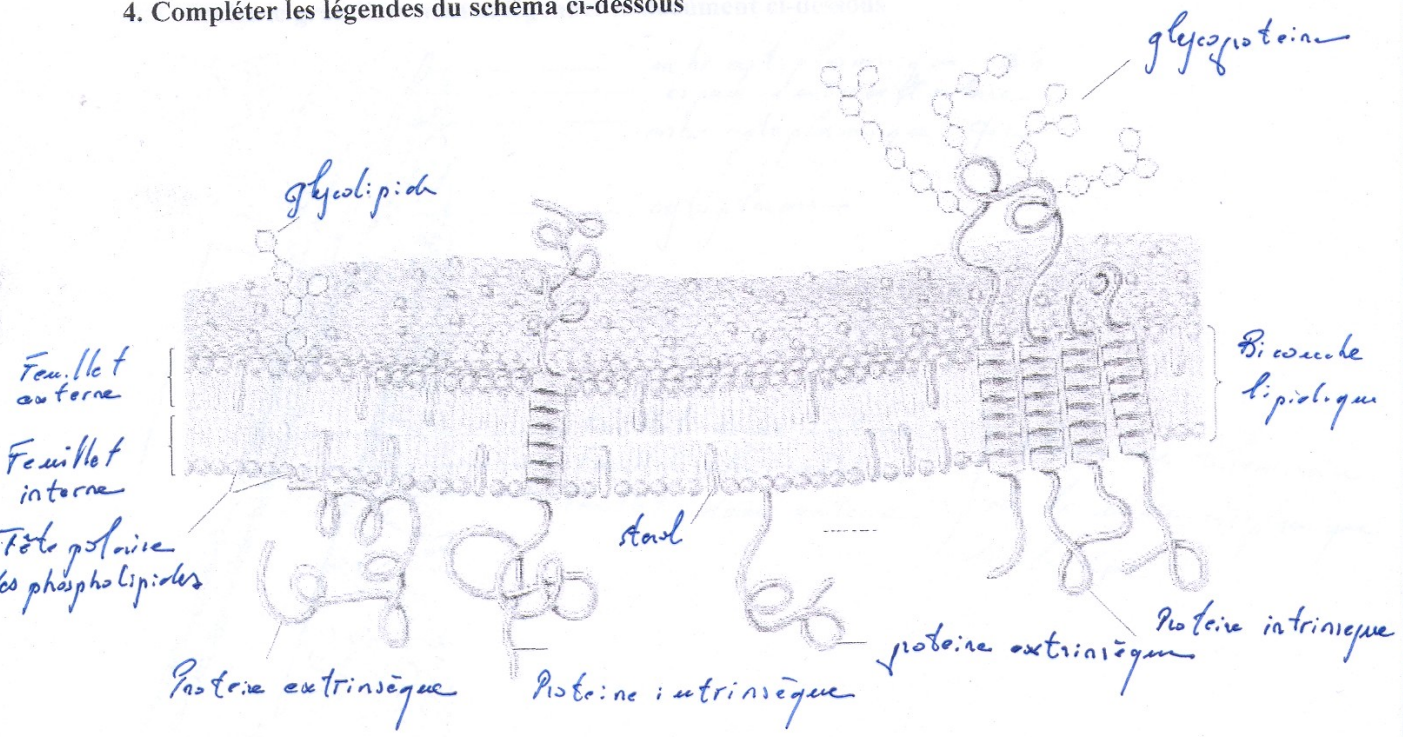 4. Compléter les légendes du schéma ci-dessous
glycoproteine
glycolipide
Feuillet
externe
Bicouche
lipidique
Feuillet
interne
Tête polaire
des phospholipides
sterol
Proteine extrinsèque
Proteine intrinsèque
proteine extrinsèque
Proteine intrinseque